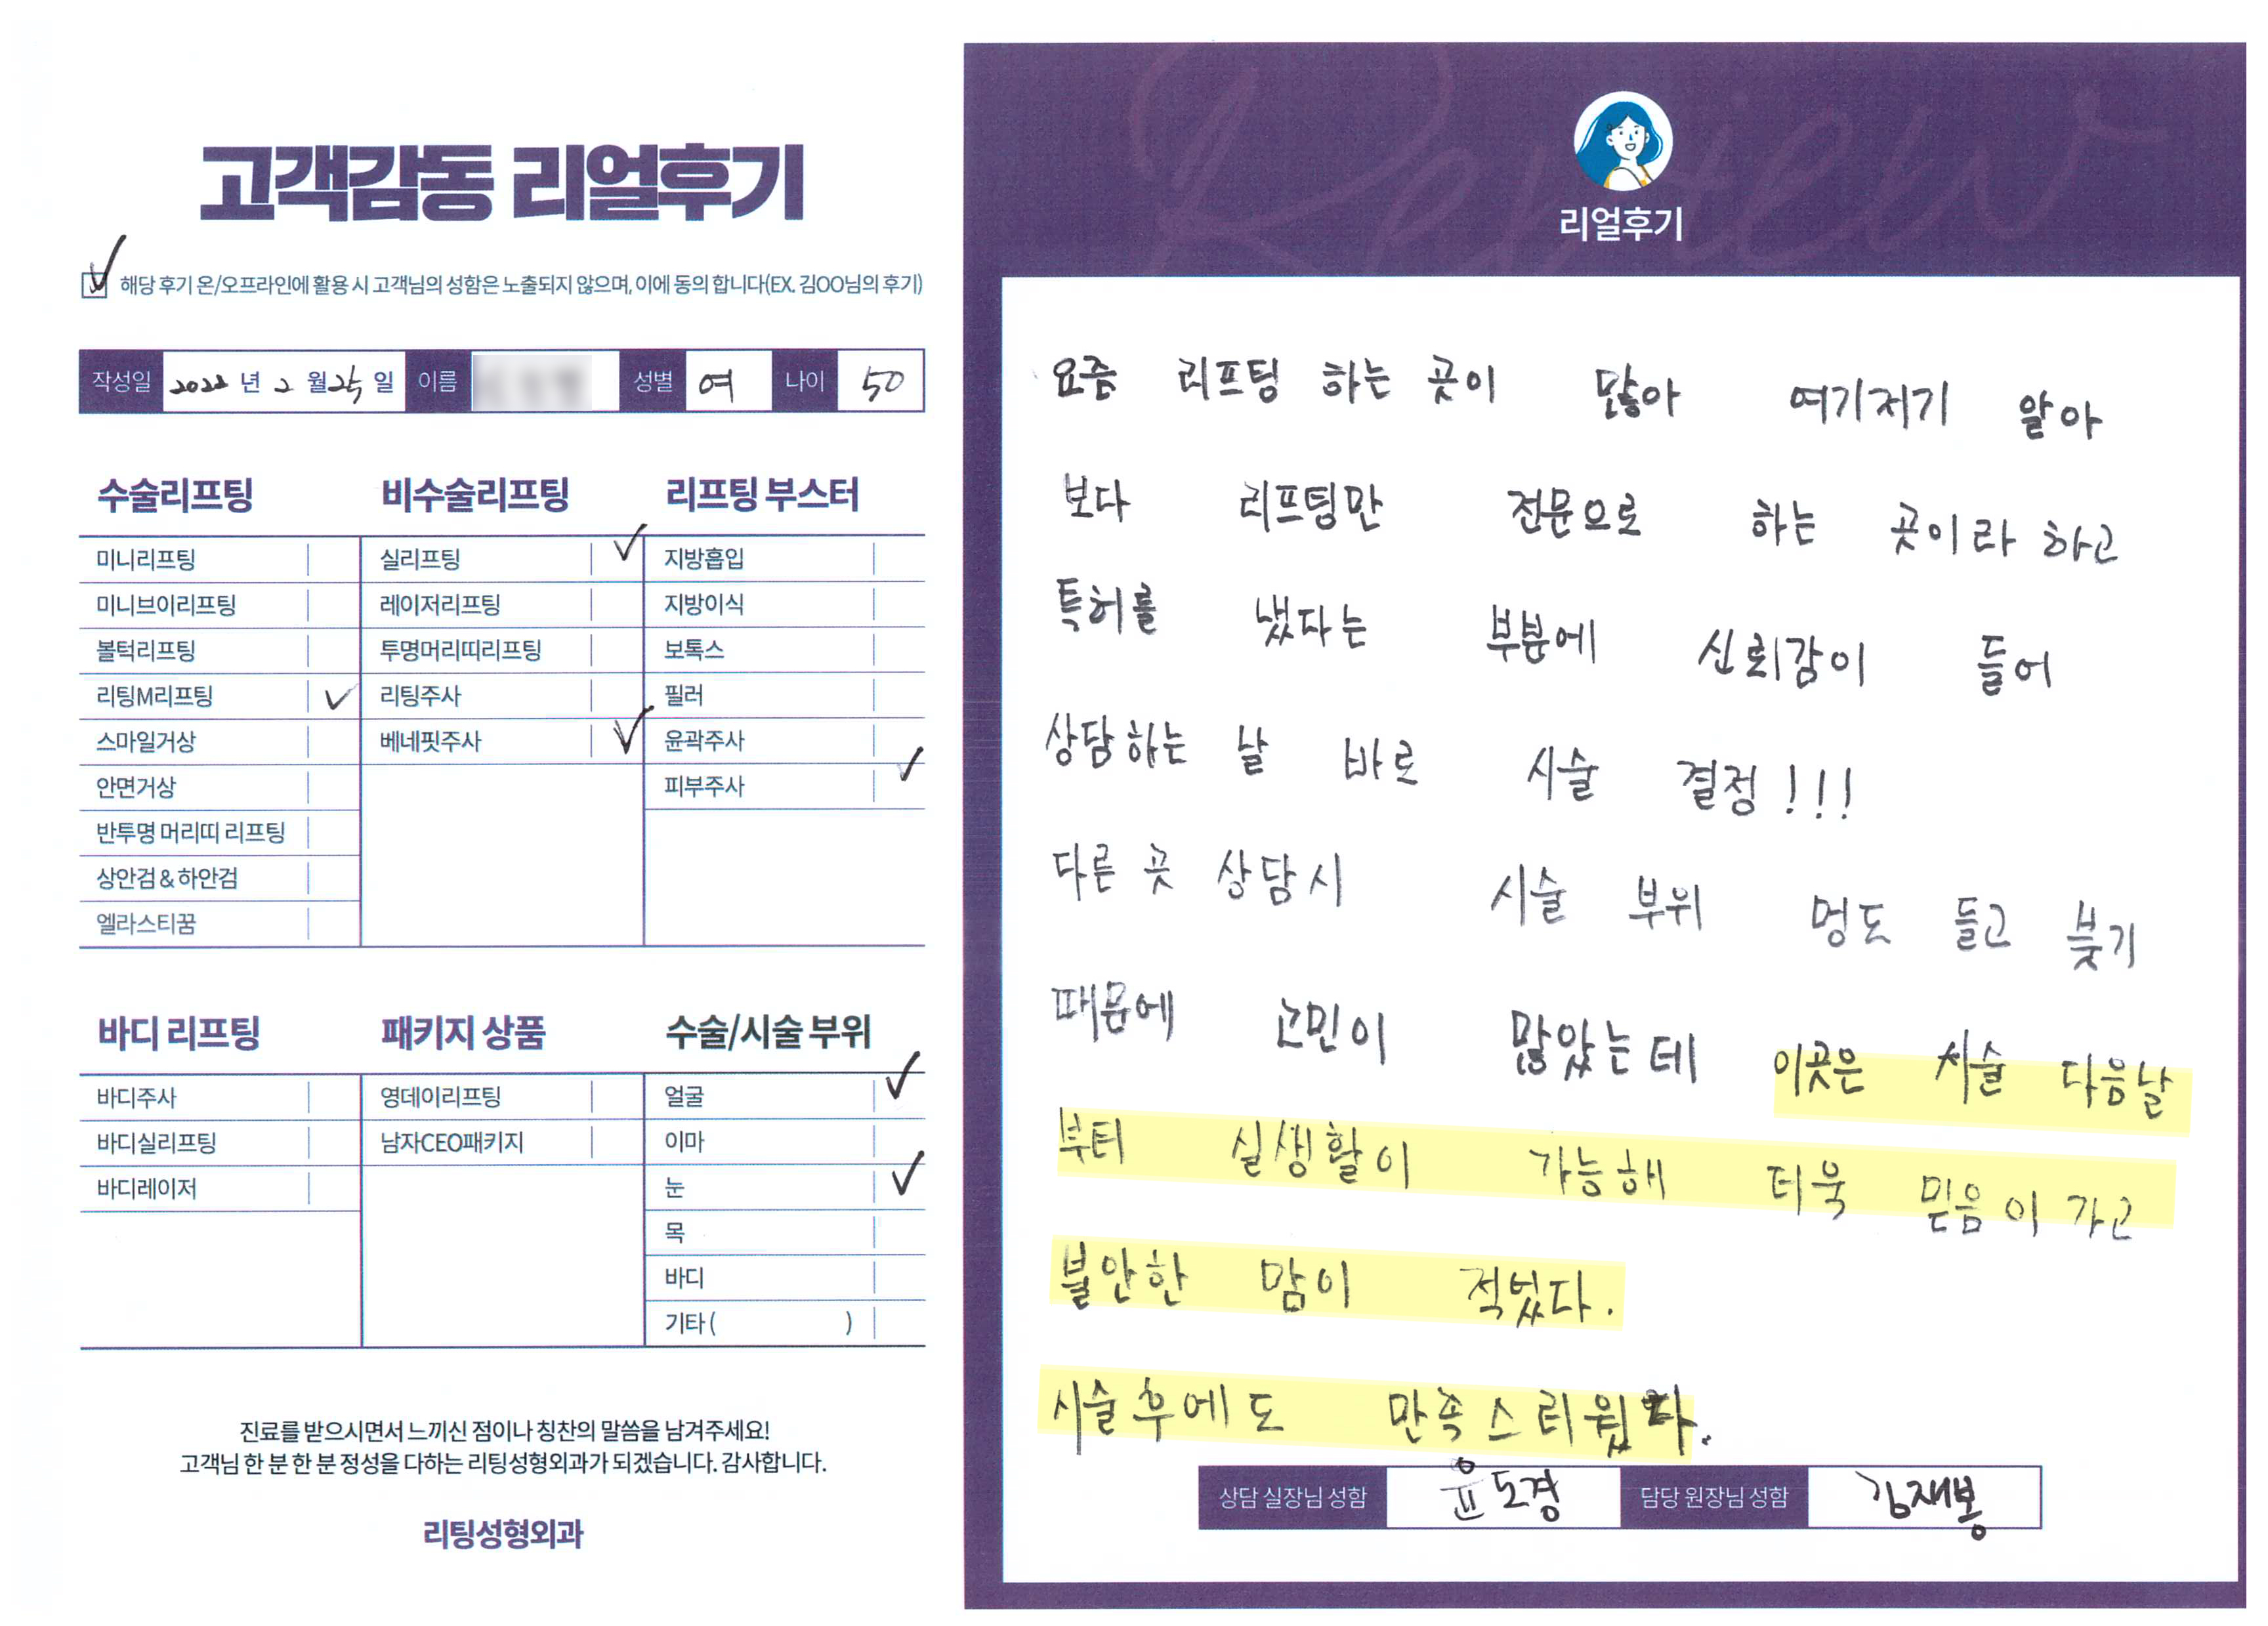 고객감동 리얼후기
해당 후기 온/오프라인에 활용 시 고객님의 성함은 노출되지 않으며, 이에 동의 합니다(EX. 김OO님의 후기)
작성일 2022 년 2 월 25 일 이름 성별 여 나이 50
수술리프팅
미니리프팅
미니브이리프팅
볼턱리프팅
리팅M리프팅
스마일거상
안면거상
반투명 머리띠 리프팅
상안검 & 하안검
엘라스티꿈
비수술리프팅
실리프팅
레이저리프팅
투명머리띠리프팅
리팅주사
베네핏주사
리프팅 부스터
지방흡입
지방이식
보톡스
필러
윤곽주사
피부주사
바디 리프팅
바디주사
바디실리프팅
바디레이저
패키지 상품
영데이리프팅
남자CEO패키지
수술/시술 부위
얼굴
이마
눈
목
바디
기타 ( )
진료를 받으시면서 느끼신 점이나 칭찬의 말씀을 남겨주세요!
고객님 한 분 한 분 정성을 다하는 리팅성형외과가 되겠습니다. 감사합니다.
리팅성형외과
Review
리얼후기
요즘 리프팅 하는 곳이 많아 여기저기 알아
보다 리프팅만 전문으로 하는 곳이라 하고
특허를 냈다는 부분에 신뢰감이 들어
상담하는 날 바로 시술 결정!!!
다른 곳 상담시 시술 부위 멍도 들고 붓기
때문에 고민이 많았는데 이곳은 시술 다음날
부터 실생활이 가능해 더욱 믿음이 가고
불안한 맘이 적었다.
시술후에도 만족스러웠다.
상담 실장님 성함 윤도경 담당 원장님 성함 김재봉